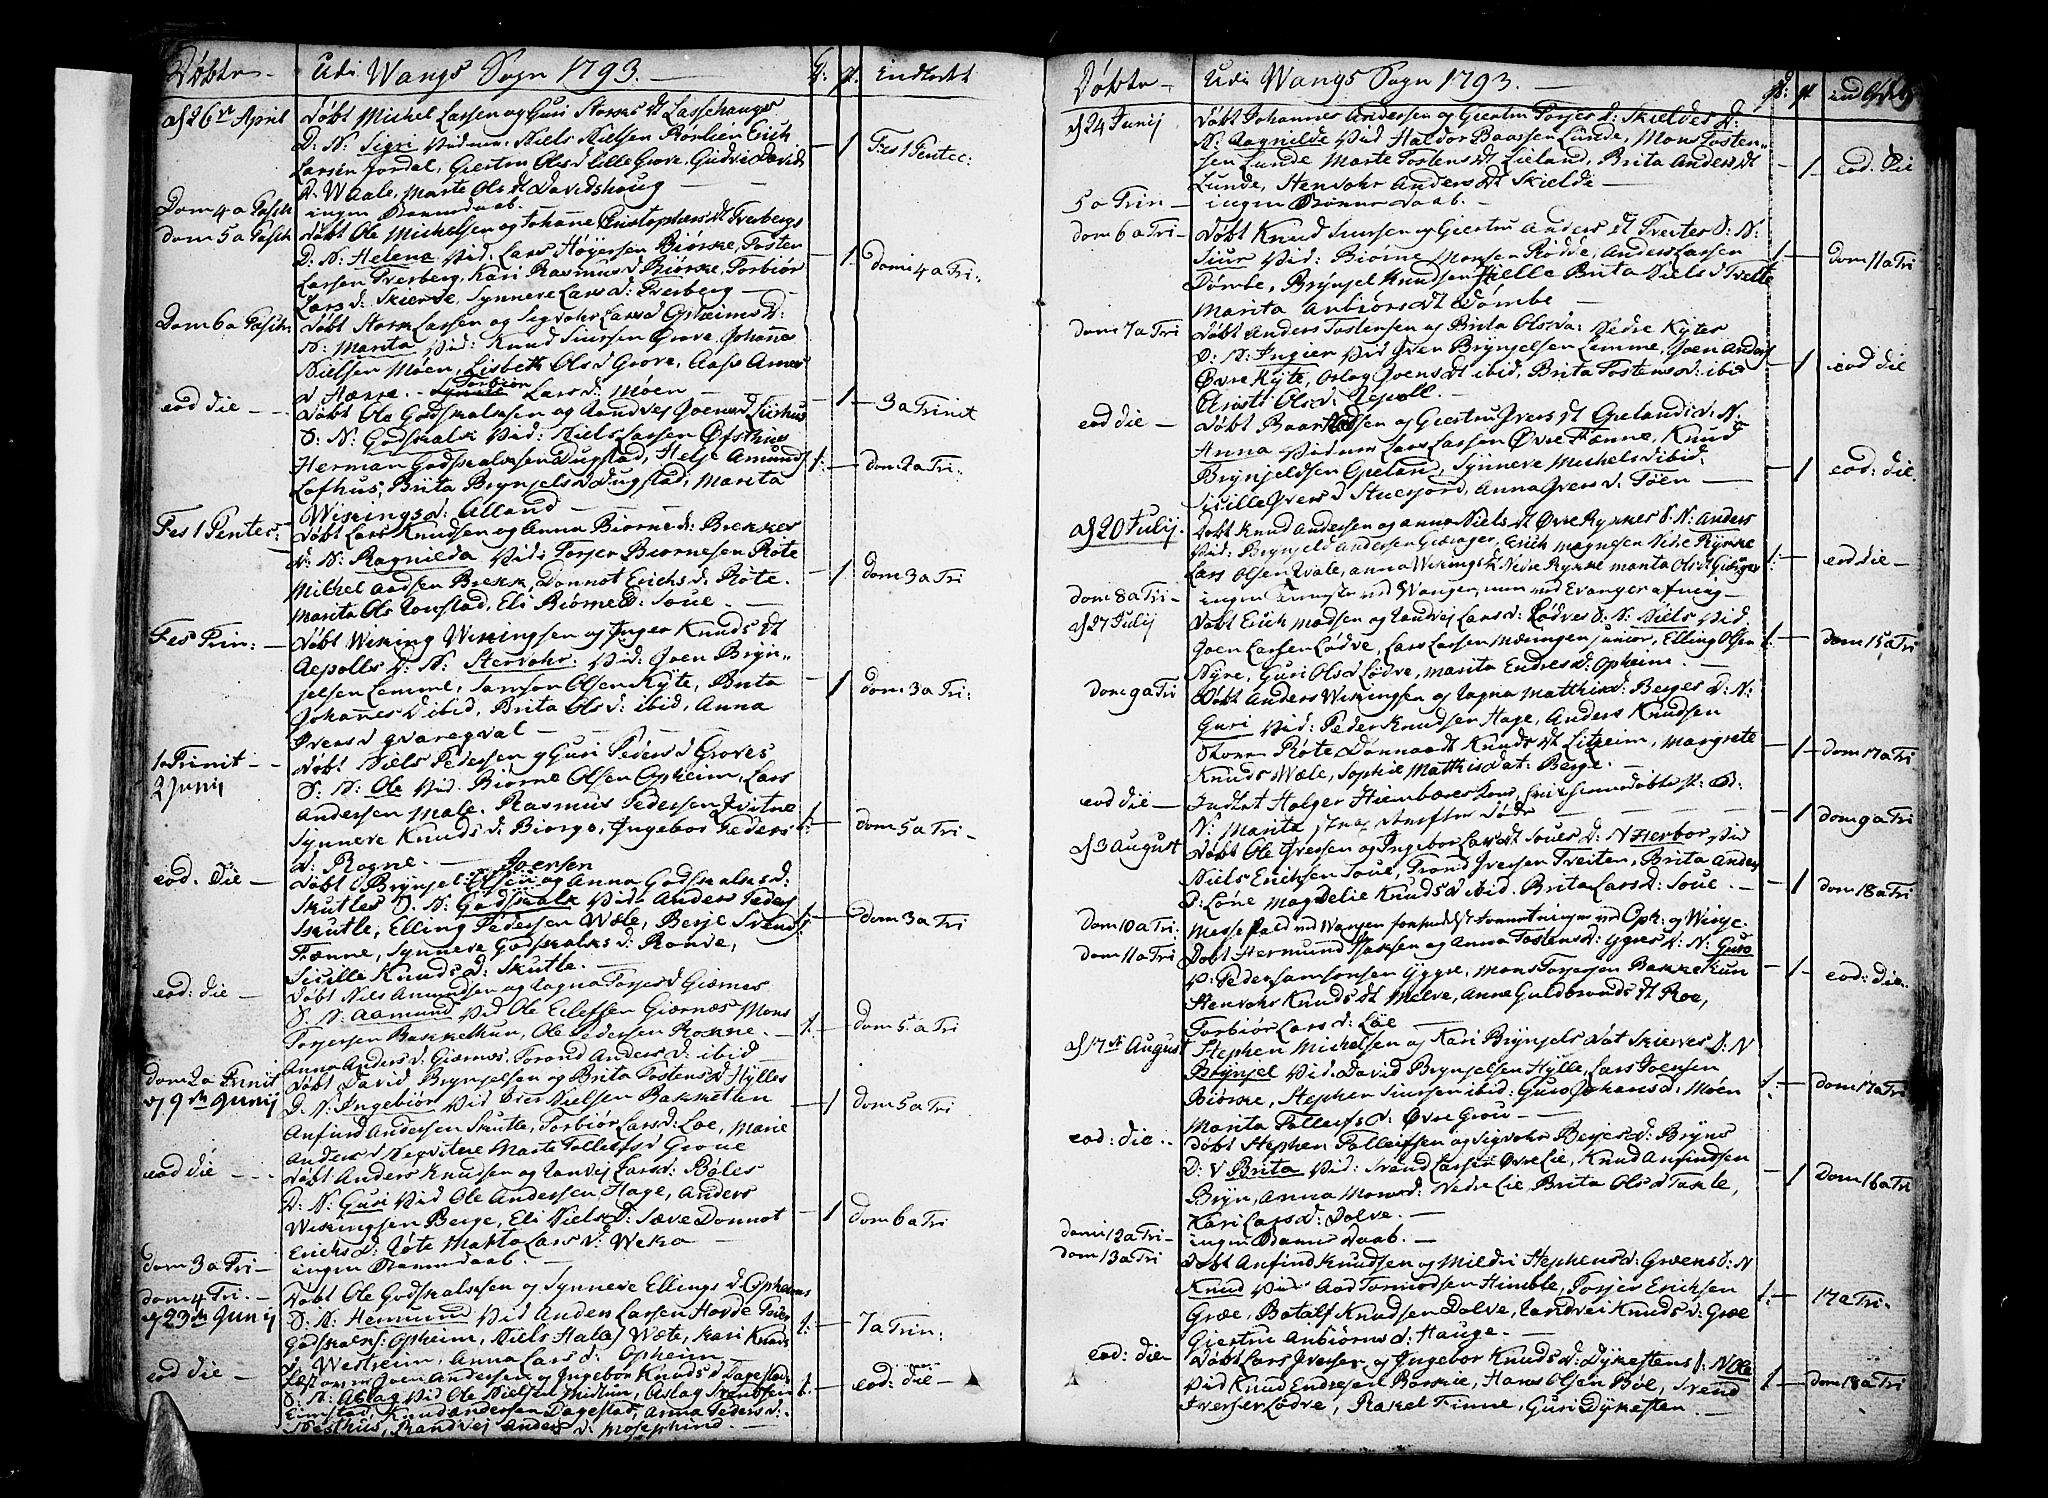 Døbte - Udi Wangs Sogn 1793. - D: P. Endlockt
d 26de April døbt Michel Larsen og Guri Storks dt Lassehauges
D: N: Sigri Vidner: Niels Nielsen Børlien Erich
Larsen Jordal, Giertru Ols d Lille Grove, Gudvi Davids
d. Waale, Marte Ols dt Davidshoug - 1 Fes 1 Pentec:
Dom 4 a Pasch ingen Barnedaab.
Dom 5 a Pasch døbt Ole Michelsen og Johanne Christophers dt Tverbergs
D: N: Helena Vid: Lars Høyersen Biørke, Tosten
Larsen Tverberg, Kari Rasmus d Biørke, Torbiør
Lars d: Skierve, Synneve Lars d: Tverberg - 1 dom: 4 a Tri:
Dom 6 a Pasch: døbt Stork Larsen og Sigvohr Lars d Opheims D:
N: Marita Vid: Knud Siursen Grove, Johannes
Nielsen Møen, Lisbeth Ols d Grove, Aase Arnes
d Hærre. Torbiør Lars d: Møen - 1 3 a Trinit
eod die - døbt Ole Godskalksen og Randvej Joens d Lirhus
D: N: Godskalk Vid: Niels Larsen Øfsthus
Herman Godskalksen Dugstad, Helje Amunds
Lofhus, Brita Brynjels d Dugstad, Marita
Wikings d: Alland - 1 - dom 2 a Tri:
Fes 1 Pentec: døbt Lars Knudsen og Anna Biørne d: Brekkes
D: N: Ragnilda Vid: Torjer Biørnesen Røte
Michel Aadsen Brekk, Dønnot Erichs d: Røte.
Marita Ols Ronstad, Eli Biørne d: Soue - 1 dom 3 a Tri
Fes Trin: - døbt Wiking Wikingsen og Inger Knuds dt
Repolls D: N: Stenvohr: Vid: Joen Bryn-
jelsen Lemme, Samson Olsen Kyte, Brita
Johannes d ibid, Brita Ols d: ibid, Anna
Ivers d Gvaregval - 1 dom 3 a Tri:
1 a Trinit - døbt Niels Pedersen og Guri Peders d Groves
2 Junij D: N: Ole Vid: Biørne Olsen Opheim, Lars
Andersen Male. Rasmus Pedersen Qvitne
Synneve Knuds d: Biorge, Ingebor Peders
d: Rogne. - 1 - dom 5 a Tri -
eod. die - døbt Brynjel Joensen og Anna Godskalks d:
Skutles D: N: Godskalk Vid: Anders Peders
Skutle, Elling Pedersen Wæle, Berje Svends
Fænne, Synneve Godskalks d: Ronve,
Sicille Knuds d: Skutle. - 1 - dom 3 a Tri
eod: die - døbt Nils Amundsen og Ragna Torjes d Giærnes
D: N: Aamund Vid Ole Eilefsen Giernæs Mons
Torjersen Bakkethun, Ole Pedersen Rokne. - 1 - dom 5 a Tri
Anna Anders d: Giærnes, Torond Anders d: ibid -
Dom 2 a Trinit døbt David Brynjelsen og Brita Tostens d Hylles
d 9de Junij D. N: Ingebiør Vid Iver Nielsen Bakketten
Anfind Andersen Skutle, Torbiør Lars d: Løe, Marie
Anders d Regvitne Marte Tolleifs d Groue - 1 dom 5 a Tri
eod die - døbt Anders Knudsen og Ranvej Lars d: Bøles
D: N: Guri Vid Ole Andersen Hage, Anders
Wikingsen Berge, Eli Niels d: Sæve Dønnot
Erichs d: Røte Makta Lars d: Weka - 1 dom 6 a Tri
dom 3 a Tri - ingen Barnedaab. -
dom 4 Tri. - døbt Ole Godskalksen og Synneve Ellings d Ophems
d 23de Junij D: N: Hermund Vid Anden Larsen Hovde Peder
Godskalks: Opheim, Niels Halas Wete, Kari Knuds
d. Westreim, Anna Lars d: Opheim - 1 - 7 a Trin:
eod die - Joen Andersen og Ingebor Knuds d Dagestads
D: N: Aslag Vid Ole Nielsen Midtun, Aslag Svendsen
Eimstad, Knud Andersen Dagestad, Anna Peders d:
Resthus, Randvej Anders d: Mosephind - 1 - eod: die -
Døbte - Udi Wangs Sogn 1793. -
d 24 Junij døbt Johannes Andersen og Giertru Torjes d: Skieldes D:
N: Ragnilde Vid: Haldor Baarsen Lunde, Mons Tosten-
sen Lunde Marte Tostens dt Lieland, Brita Anders dt
Lunde, Stenvohr Anders dt Skielde - 1 - eod. die
5 a Trin - ingen Børne Daab -
dom 6 a Tri - døbt Knud Siursen og Giertru Anders dt Treites D: N:
Siur Vid: Biørne Monsen Rødve, Anders Larsen
Dømbe, Brynjel Knudsen Helle Brita Niels d Treite
Marita Anbiørs dt Dømbe - 1 - dom 11 a Tri
dom 7 a Tri døbt Anders Tostensen og Brita Ols da: Nedre Kytes
D: N: Ingier Vid Iver Brynjelsen Lemme, Joen Anders
Øvre Kyte, Oslog Joens dt ibid, Brita Tostens d: ibid
Christi Ols d: Repoll. - 1 eod die
eod die - døbt Baar Aadsen og Giertru Ivers dt Gielands D: N:
Anna Vidner Lars Larsen Øvre Fænne, Knud
Brynjeldsen Gieland, Synneve Michels d ibid.
Sicille Ivers d Stuefjord, Anna Ivers d: Tøen - 1 eod: die.
d 20 Julij. døbt Knud Andersen og Anna Niels dt Øvre Rykkes D: N: Anders
Vid: Brynjeld Andersen Giærager, Erich Magnesen Nedre Rykke
Lars Olsen Wale, Anna Wikings d: Nedre Rykke Marita Ols d Gierager 1 - eod die -
dom 8 a Tri - ingen Tieneste ved Wangen, men ved Evanger
d 27 Julij døbt Erich Madsen og Randvej Lars d: Lødves D: N: Niels Vid.
Joen Larsen Lødve, Lars Larsen Mæringen junior, Elling Olsen
Nyre, Guri Ols d: Lødve, Marita Endres d: Opheim. - 1 - dom 15 a Tri
Dom 9 a Tri døbt Anders Wikingsen og Ragna Matthis d: Berges D: N:
Guri Vid: Peder Knudsen Hage, Anders Knudsen
Røte Dønnaadt Knuds dt Litreim, Margrete
Knuds Wæle, Sophie Matthis dat: Berge. - 1 - dom 17 a Tri
eod die - Indlat Holger hiemmedøbte P: B:
N: Marita strax derefter døde - 1 dom 9 a Tri
d 3 August døbt Ole Iversen og Ingebor Lars dt Soues D: N Herbor Vid
Niels Erichsen Soue, Trond Iversen Treiten, Brita Anders
d: Løne Magdelie Knuds d ibid. Brita Lars d: Soue. - 1 dom 18 a Tri
Dom 10 a Tri. Messefald ved Wangen
dom 11 a Tri døbt Hermund Isaksen og Anna Tostens d: Ygres D: N: Guro
V: Peder Samsonsen Ygre, Mons Torjersen Bakkethun
Stenvohr Knuds dt Melve, Anne Guldbrands dt Roe,
Torbiør Lars d: Løe - 1 - eod: die.
d 17de August Stephen Michelsen og Kari Brynjels dat Skierves D: N
Brynjel Vid: David Brynjelsen Hylle, Lars Joensen
Biørke, Stephen Siursen ibid: Guro Johans d: Møen
Marita Tolleifs d: Øvre Grov - 1 - dom 17 a Tri
eod: die .. døbt Stephen Tolleifsen og Sigvohr Berjes d: Bryns
D: N Brita Vid: Svend Larsen Øvre Lie, Knud Anfindsen
Bryn, Anna Mons d: Nedre Lie, Brita Ols d Takle,
Kari Lars d: Dolve. - 1 Dom 16 a Tri
dom 12 a Tri - ingen Barne Daab. -
dom 13 a Tri døbt Anfind Knudsen og Mildri Stephens d: Græens D: N
Knud Vid: Aad Tormodsen Himble, Torjer Erichsen
Græe, Botalf Knudsen Dolve, Randvei Knuds d: Græe
Giertru Anbiørns d: Hauge. - 1 - 17 a Tri.
eod: die - døbt Lars Iversen og Ingebor Knuds d: Dykestens D: N Ole
Vid Knud Endresen Rokne, Hans Olsen Bøe, Svend
Iversen Lødve, Rakel Finne, Guri Dykesten - 1 - dom 18 a Tri